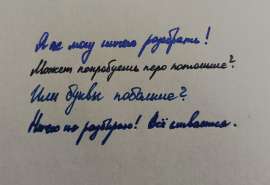 Я не могу ничего разобрать!
Может попробуешь перо потоньше?
Или буквы побольше?
Ничего не разбираю! Всё сливается.